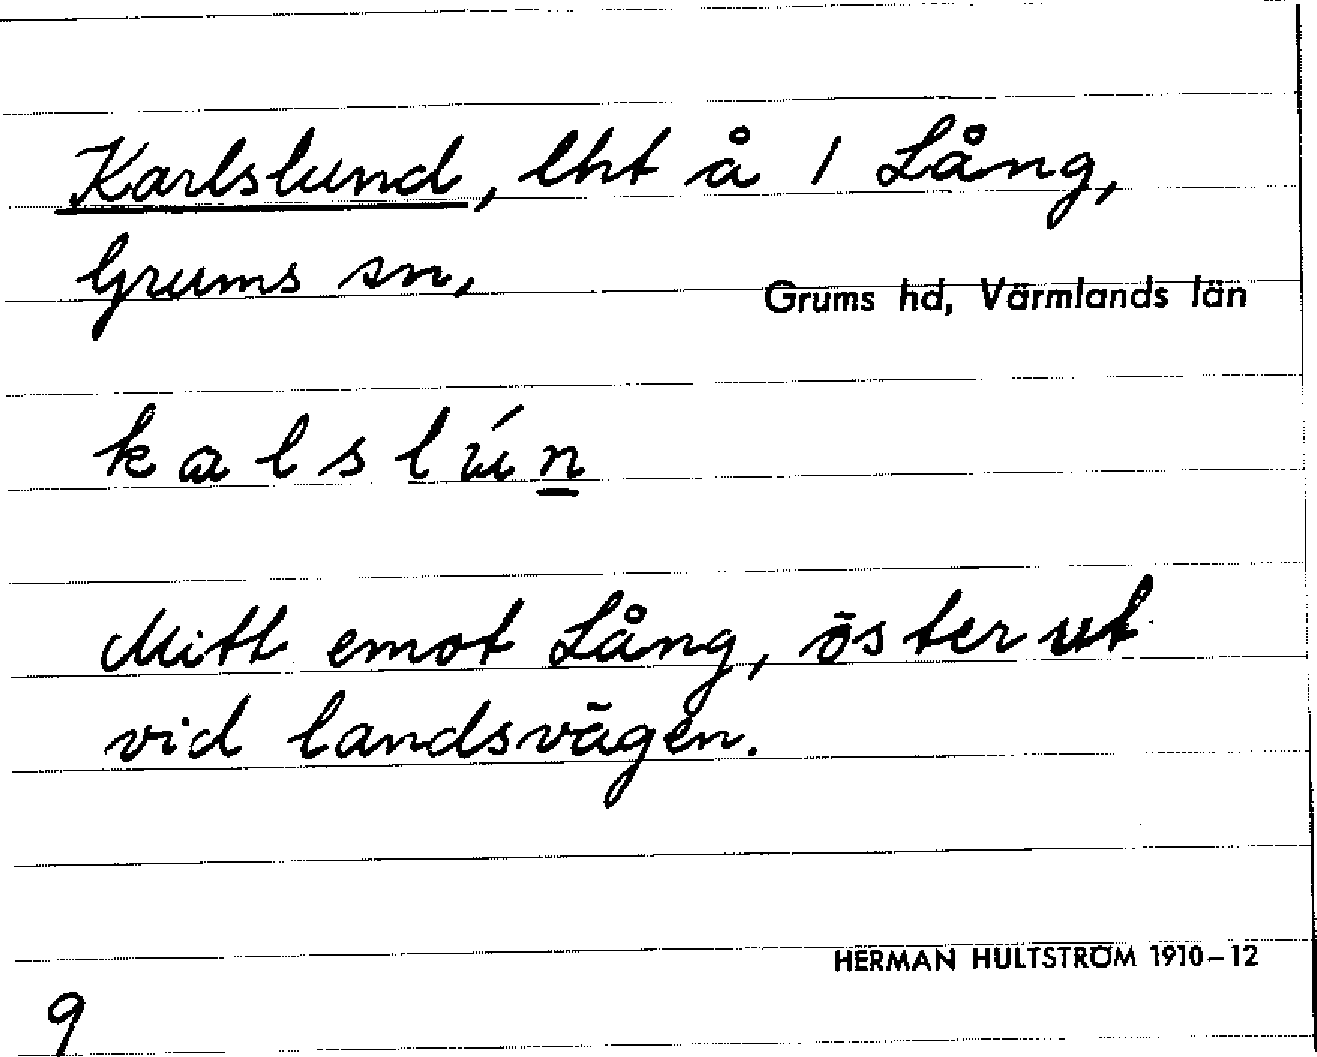 Karlslund, lht å 1 Lång,
Grums sn, Grums hd, Värmlands län
kalslún
Mitt emot Lång, österut
vid landsvägen.
HERMAN HULTSTRÖM 1910–12
9